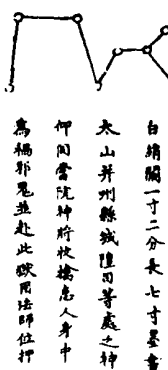 白絹闊一寸二分長七寸墨書
太山并州縣城隍司等處之神
仰関當院神將收擒患人身中
為禍邪鬼並赴此獄用法師位押